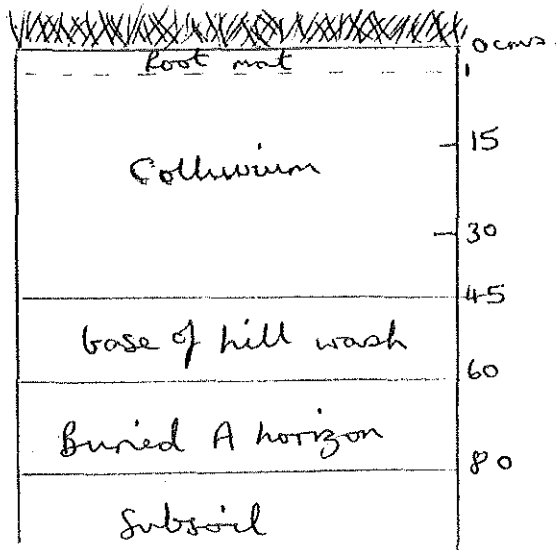 0 cms.
Root mat
15
Colluvium
30
45
base of hill wash
60
Buried A horizon
80
Subsoil